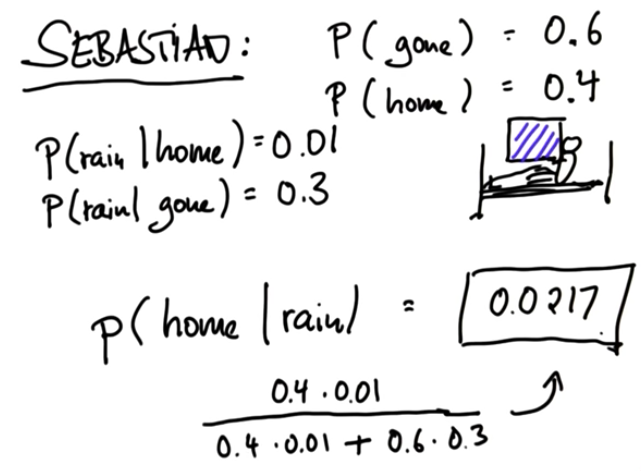 SEBASTIAN:
P(gone) = 0.6
P(home) = 0.4
P(rain | home) = 0.01
P(rain | gone) = 0.3
P(home | rain) = 0.0217
0.4 · 0.01
0.4 · 0.01 + 0.6 · 0.3